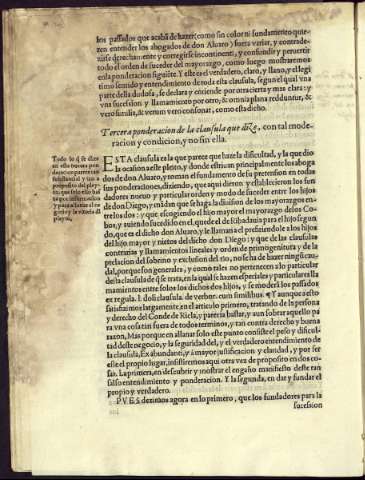 los passados que acabã de hazer (como sin color ni fundamento quie-
ren entender los abogados de don Aluaro) fuera variar, y contrade-
zirse derechamente y corregirse incontinenti, y confundir y peruertir
todo el orden de suceder del mayorazgo, como luego mostraremos
en la ponderacion siguiẽte. Y este es el verdadero, claro, y llano, y el legi
timo sentido y entendimiento de toda esta clausula, segun el qual vna
parte della dudosa, se declara y entiende por otra cierta y mas clara: y
vna sucession y llamamiento por otro, & omnia plana redduntur, &
vero similia, & verum vero consonat, como esta dicho.
Tercera ponderacion de la clausula que dize, con tal mode-
racion y condicion, y no sin ella.
Todo lo q̃ se dize
en esta tercera pon
deracion parece tan
substancial y tan a
proposito del pley-
to, que solo este bas
ta para
y para
gocio y la vitoria dl
pleyto.
ESTA clausula es la que parece que haze la dificultad, y la que dio
la ocasion a este pleyto, y donde estriuan principalmente los aboga
dos de don Aluaro, y toman el fundamento de su pretension en todas
sus ponderaciones, diziendo, que aqui dieron y establecieron los fun-
dadores nueuo y particular orden y modo de suceder entre los hijos
de don Diego, en mãdar que se haga la diuision de los mayorazgos en-
tre los dos: y que escogiendo el hijo mayor el mayorazgo de los Co-
bos, y auiendo sucedido en el, quede el de
do, que es el dicho don Aluaro, y le llaman y prefieren de a los hijos
del hijo mayor y nietos del dicho don Diego: y que de las clausulas
contrarias y llamamientos lineales y orden de primogenitura y de la
prelacion del sobrino y exclusion del tio, no se ha de hazer ningũ cau-
dal, porque son generales, y como tales no pertenecen a lo particular
desta clausula de q̃ se trata, en la qual se hazen especiales y particulares lla
mamientos entre solos los dichos dos hijos, y se modera los passados
ex regula. l. doli clausula. de verbor. cum similibus. ¶ Y aunque a esto
satisfazimos largamente en el articulo primero, tratando de la persona
y derecho del Conde de Ricla, y parecia bastar, y aun sobrar aquello pa
ra vna cosa tan fuera de todos terminos, y tan contra derecho y buena
razon, Mas porque en allanar solo este punto consiste el peso y dificul-
tad deste negocio, y la seguridad del, y el verdadero entendimiento de
la clausula, Ex abundanti, y a mayor justificacion y claridad, y por ser
este el propio lugar, insistiremos aqui otra vez de proposito en dos co-
sas. La primera, en descubrir y mostrar el engaño manifiesto deste tan
falso entendimiento y ponderacion. Y la segunda, en dar y fundar el
propio y verdadero.
PVES dezimos agora en lo primero, que los fundadores para la
sucession